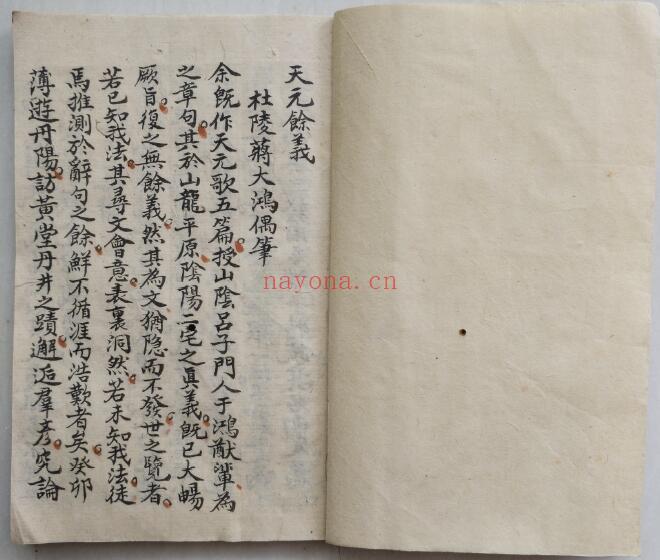 天元餘義
杜陵蔣大鴻偶筆
余既作天元歌五篇授山陰呂子門人于鴻猷輩為
之章句其於山龍平原陰陽二宅之真義既已大暢
厥旨復之無餘義然其為文猶隐而不發世之覽者
若已知我法其尋文會意表裏洞然若未知我法徒
焉推測於辭句之餘鮮不循涯而浩歎者矣癸卯
薄遊丹陽訪黃堂丹井之蹟邂逅羣彥究論
nayona.cn